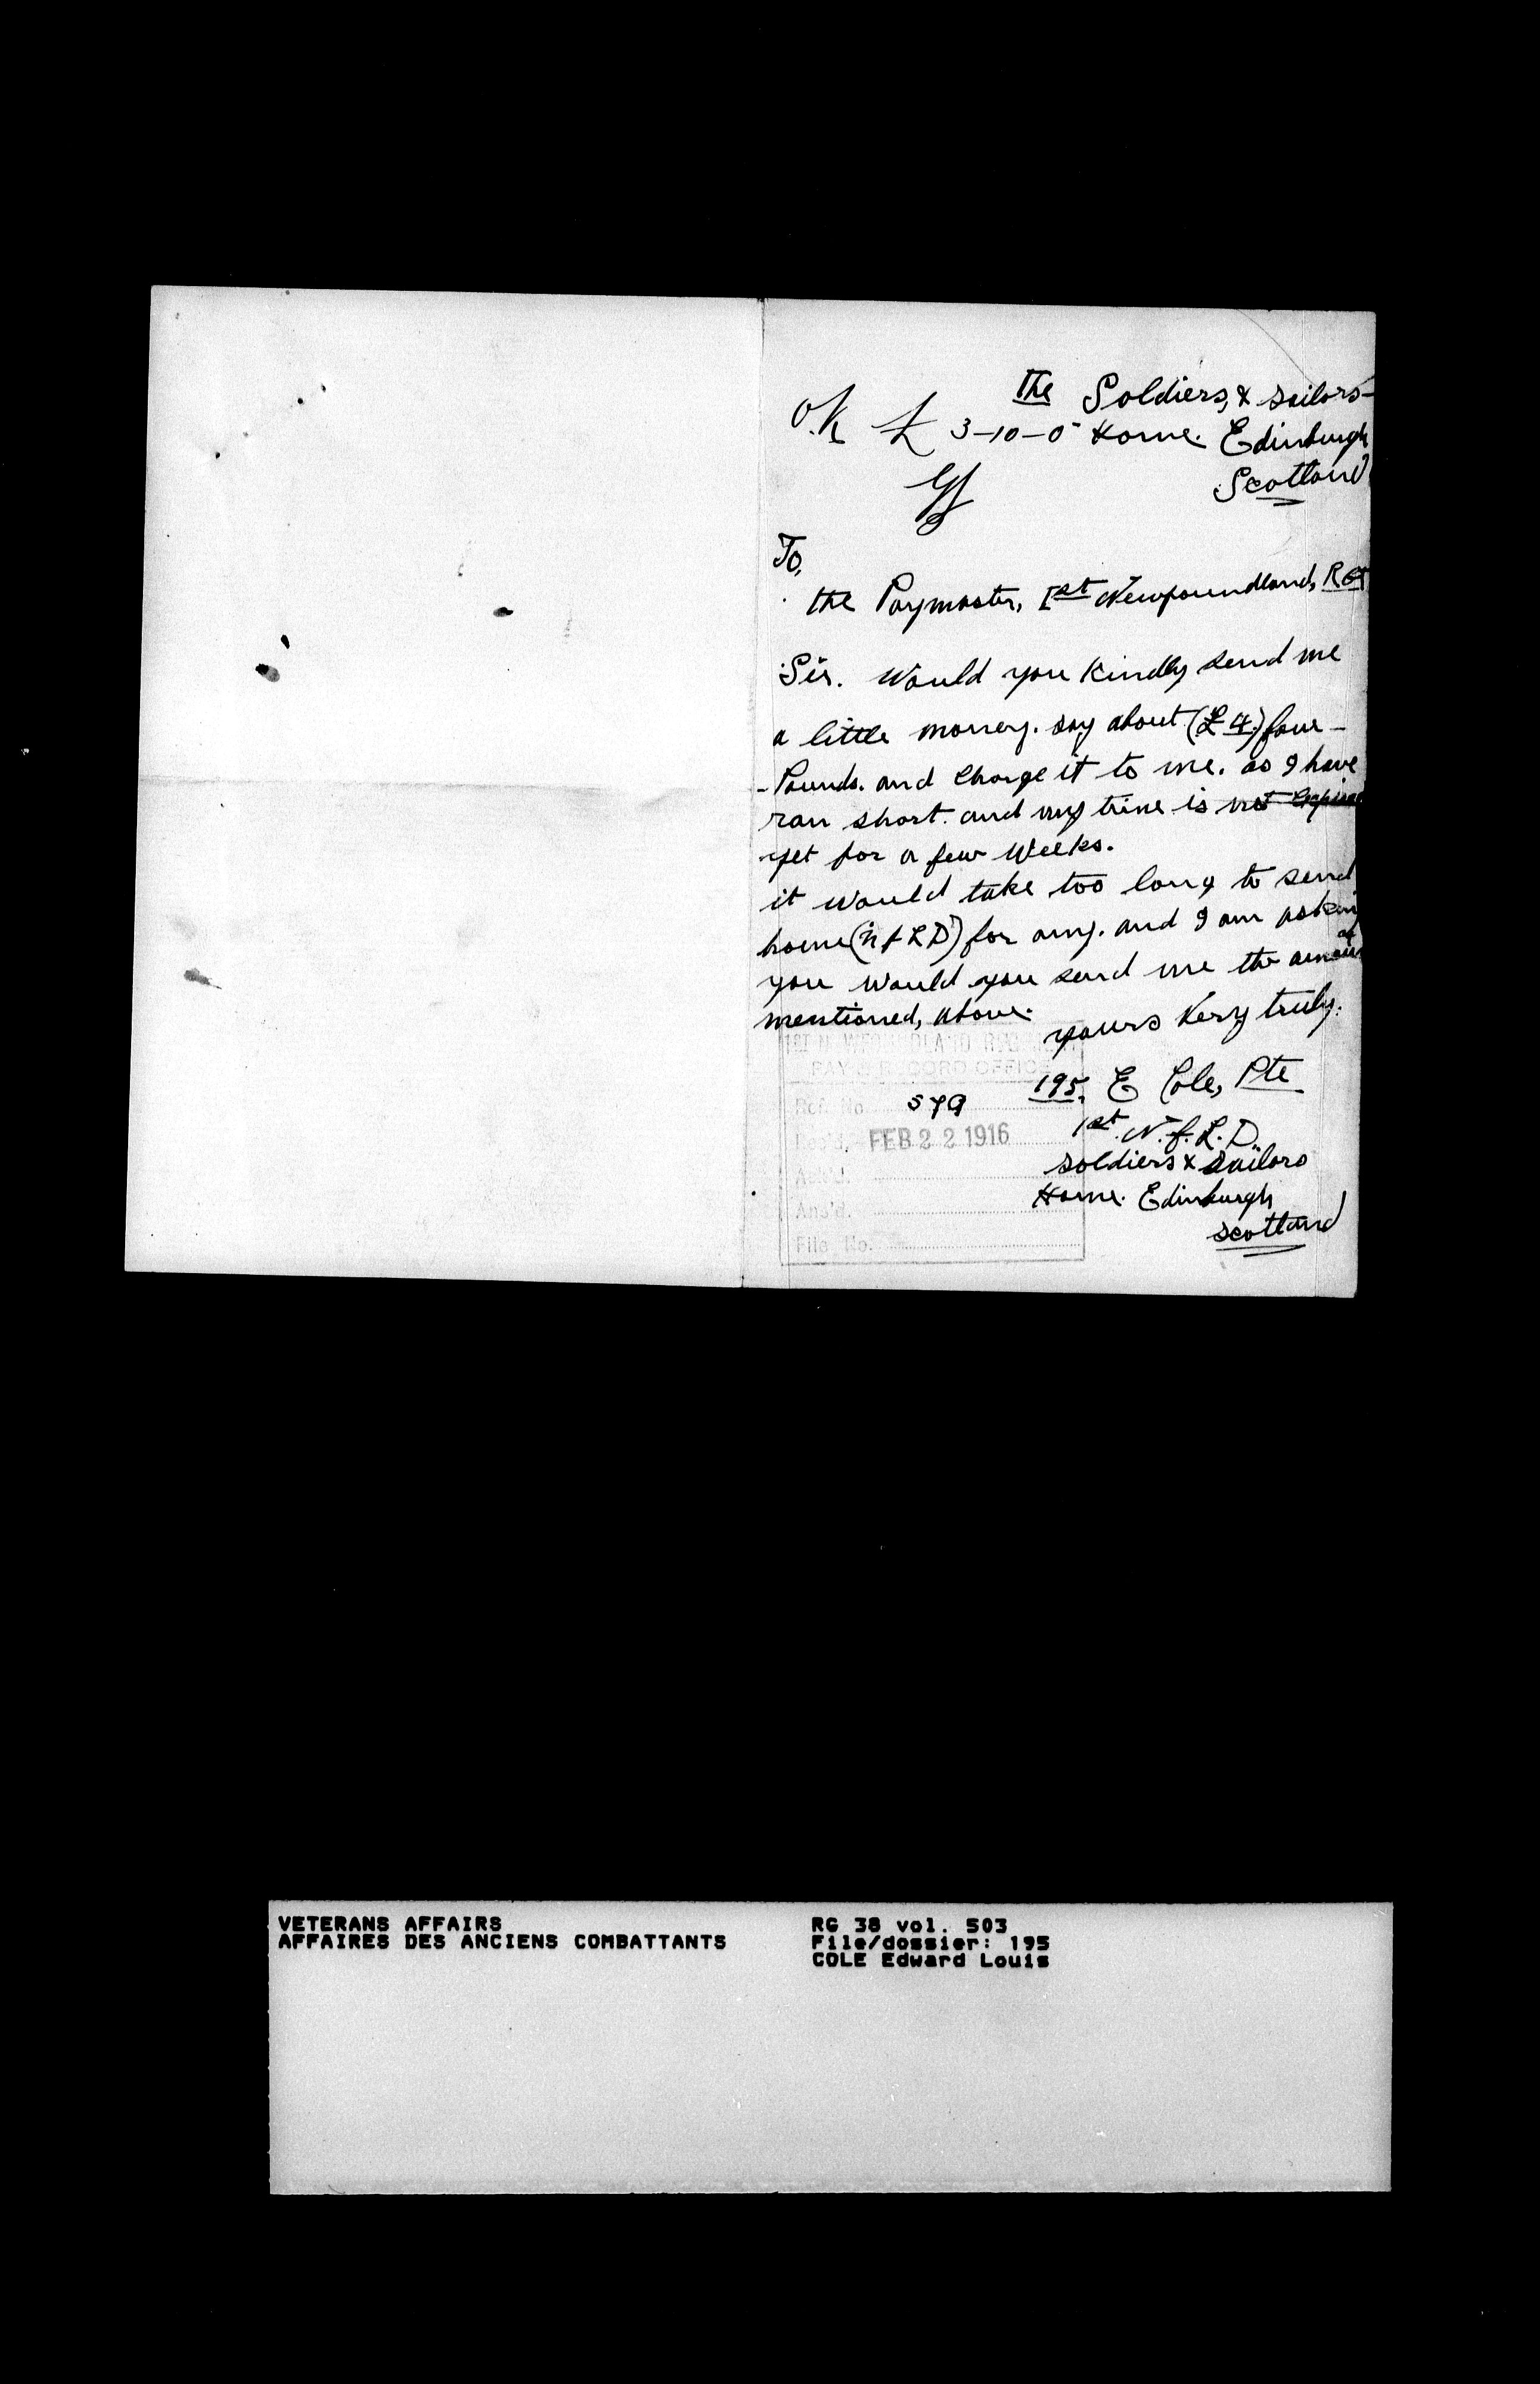 The Soldiers, & sailors-
O.K £ 3-10-0 Home. Edinburgh
Scotland
To,
the Paymaster, 1st Newfoundland, Rgt
Sir. Would you kindly send me
a little money. say about (£4.) four-
-Pounds. and charge it to me. as I have
ran short. and my time is not expired
yet for a few weeks.
it would take too long to send
home (NFLD) for any. and I am asking
you would you send me the amount
mentioned, above.
yours very truly.
195. E Cole, Pte
1st N.f.L.D.
soldiers & sailors
Home. Edinburgh
scotland
1ST NEWFOUNDLAND REGIMENT
PAY & RECORD OFFICE
Ref. No. 579
Rec'd. FEB 22 1916
Ack'd.
Ans'd.
File No.
VETERANS AFFAIRS
AFFAIRES DES ANCIENS COMBATTANTS
RG 38 vol. 503
File/dossier: 195
COLE Edward Louis